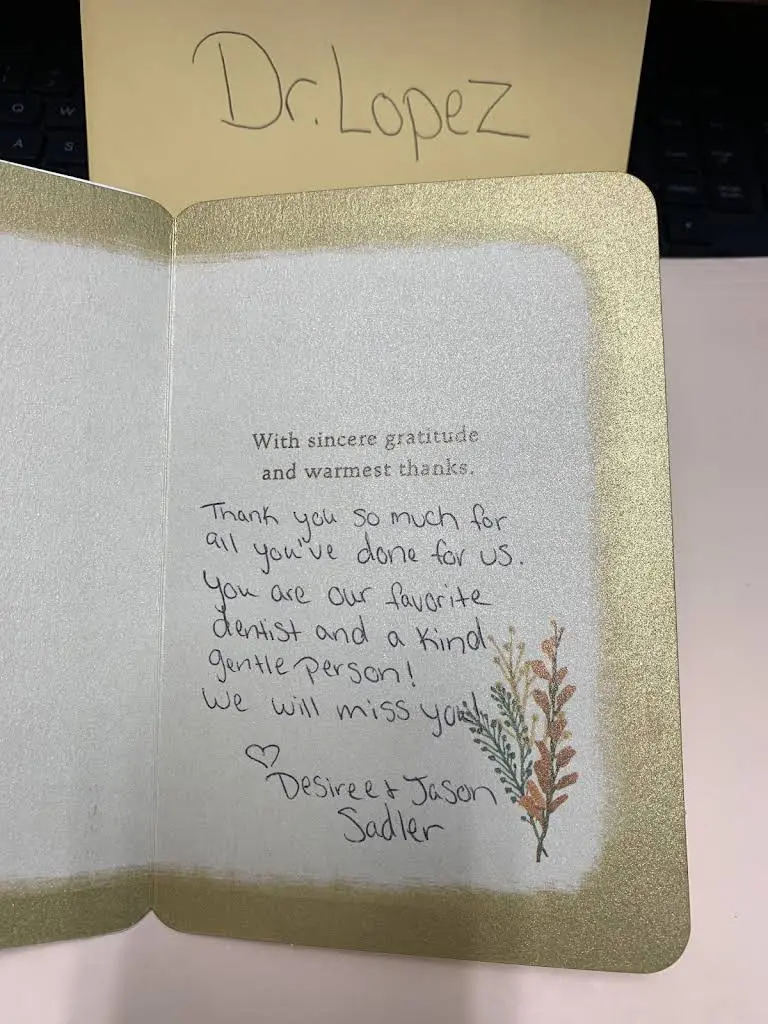 Dr. Lopez
With sincere gratitude
and warmest thanks.
Thank you so much for
all you've done for us.
You are our favorite
dentist and a kind,
gentle person!
We will miss you!
♡
Desiree & Jason
Sadler
Q W
A S